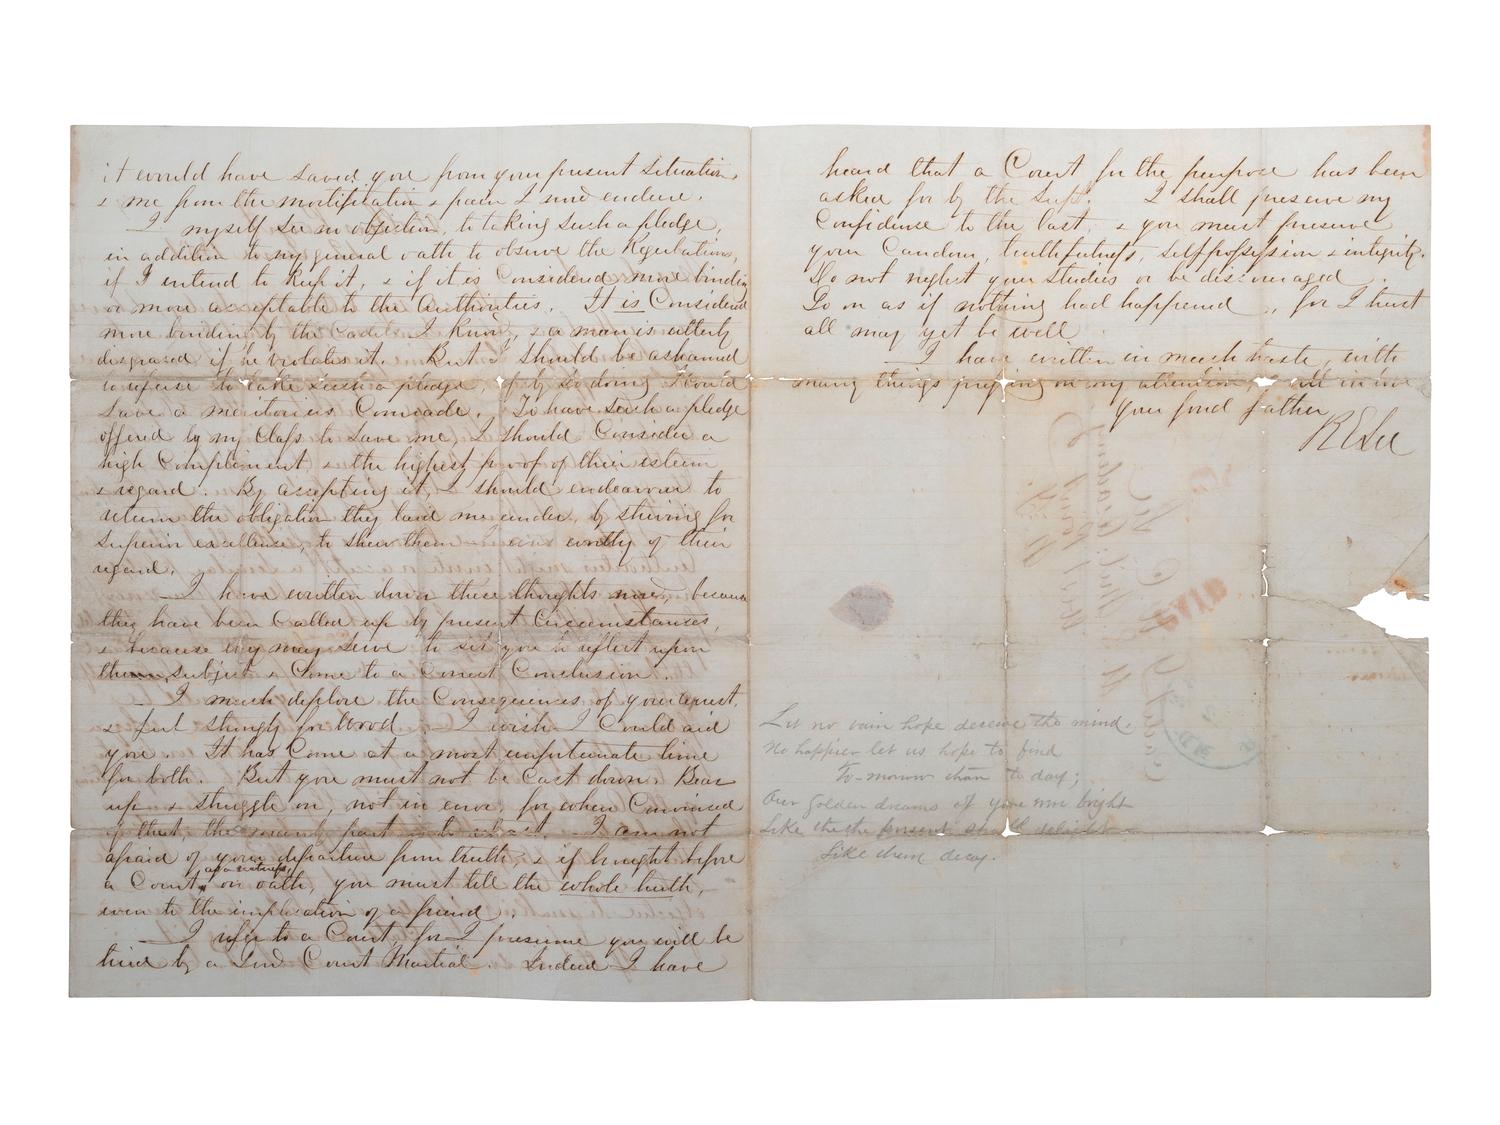 it would have saved you from your present situation,
& me from the mortification & pain I now endure.
I myself see no objection, to taking such a pledge,
in addition to my general oath to observe the Regulations,
if I intend to keep it, & if it is Considered more binding
or more acceptable to the authorities. It is Considered
more binding by the Cadets I know, & a man is utterly
disgraced if he violates it. But I should be ashamed
to refuse to take such a pledge, if by so doing I could
save a meritorious Comrade. To have such a pledge
offered by my Class to save me, I should Consider a
high Compliment & the highest proof of their esteem
& regard. By accepting it, I should endeavour to
return the obligation they laid me under, by striving for
superior excellence, to shew them I was worthy of their
regard.
I have written down these thoughts now, because
they have been Called up by present Circumstances,
& because they may serve to set you to reflect upon
the subject & Come to a Correct Conclusion.
I much deplore the Consequences of your arrest,
& feel strongly for Wood. I wish I Could aid
you. It has Come at a most unfortunate time
for both. But you must not be Cast down. Bear
up & struggle on, not in error, for when Convinced
of that, the manly part is to I am not
afraid of your departure from truth, & if brought before
a Court, as a witness, on oath, you must tell the whole truth,
even to the implication of a friend.
I refer to a Court, for I presume you will be
tried by a Court Martial. Indeed I have
heard that a Court for the purpose has been
asked for by the Supt. I shall preserve my
Confidence to the last, & you must preserve
your Candour, truthfulness, selfpossession & integrity.
Do not neglect your studies or be discouraged.
Go on as if nothing had happened, for I trust
all may yet be well
I have written in much haste, with
many things pressing on my attention
Your fond father
R E Lee
Let no vain hope deceive the mind.
No happier let us hope to find
To-morrow than to day;
Our golden dreams of yore were bright
Like them the present shall delight
Like them decay.